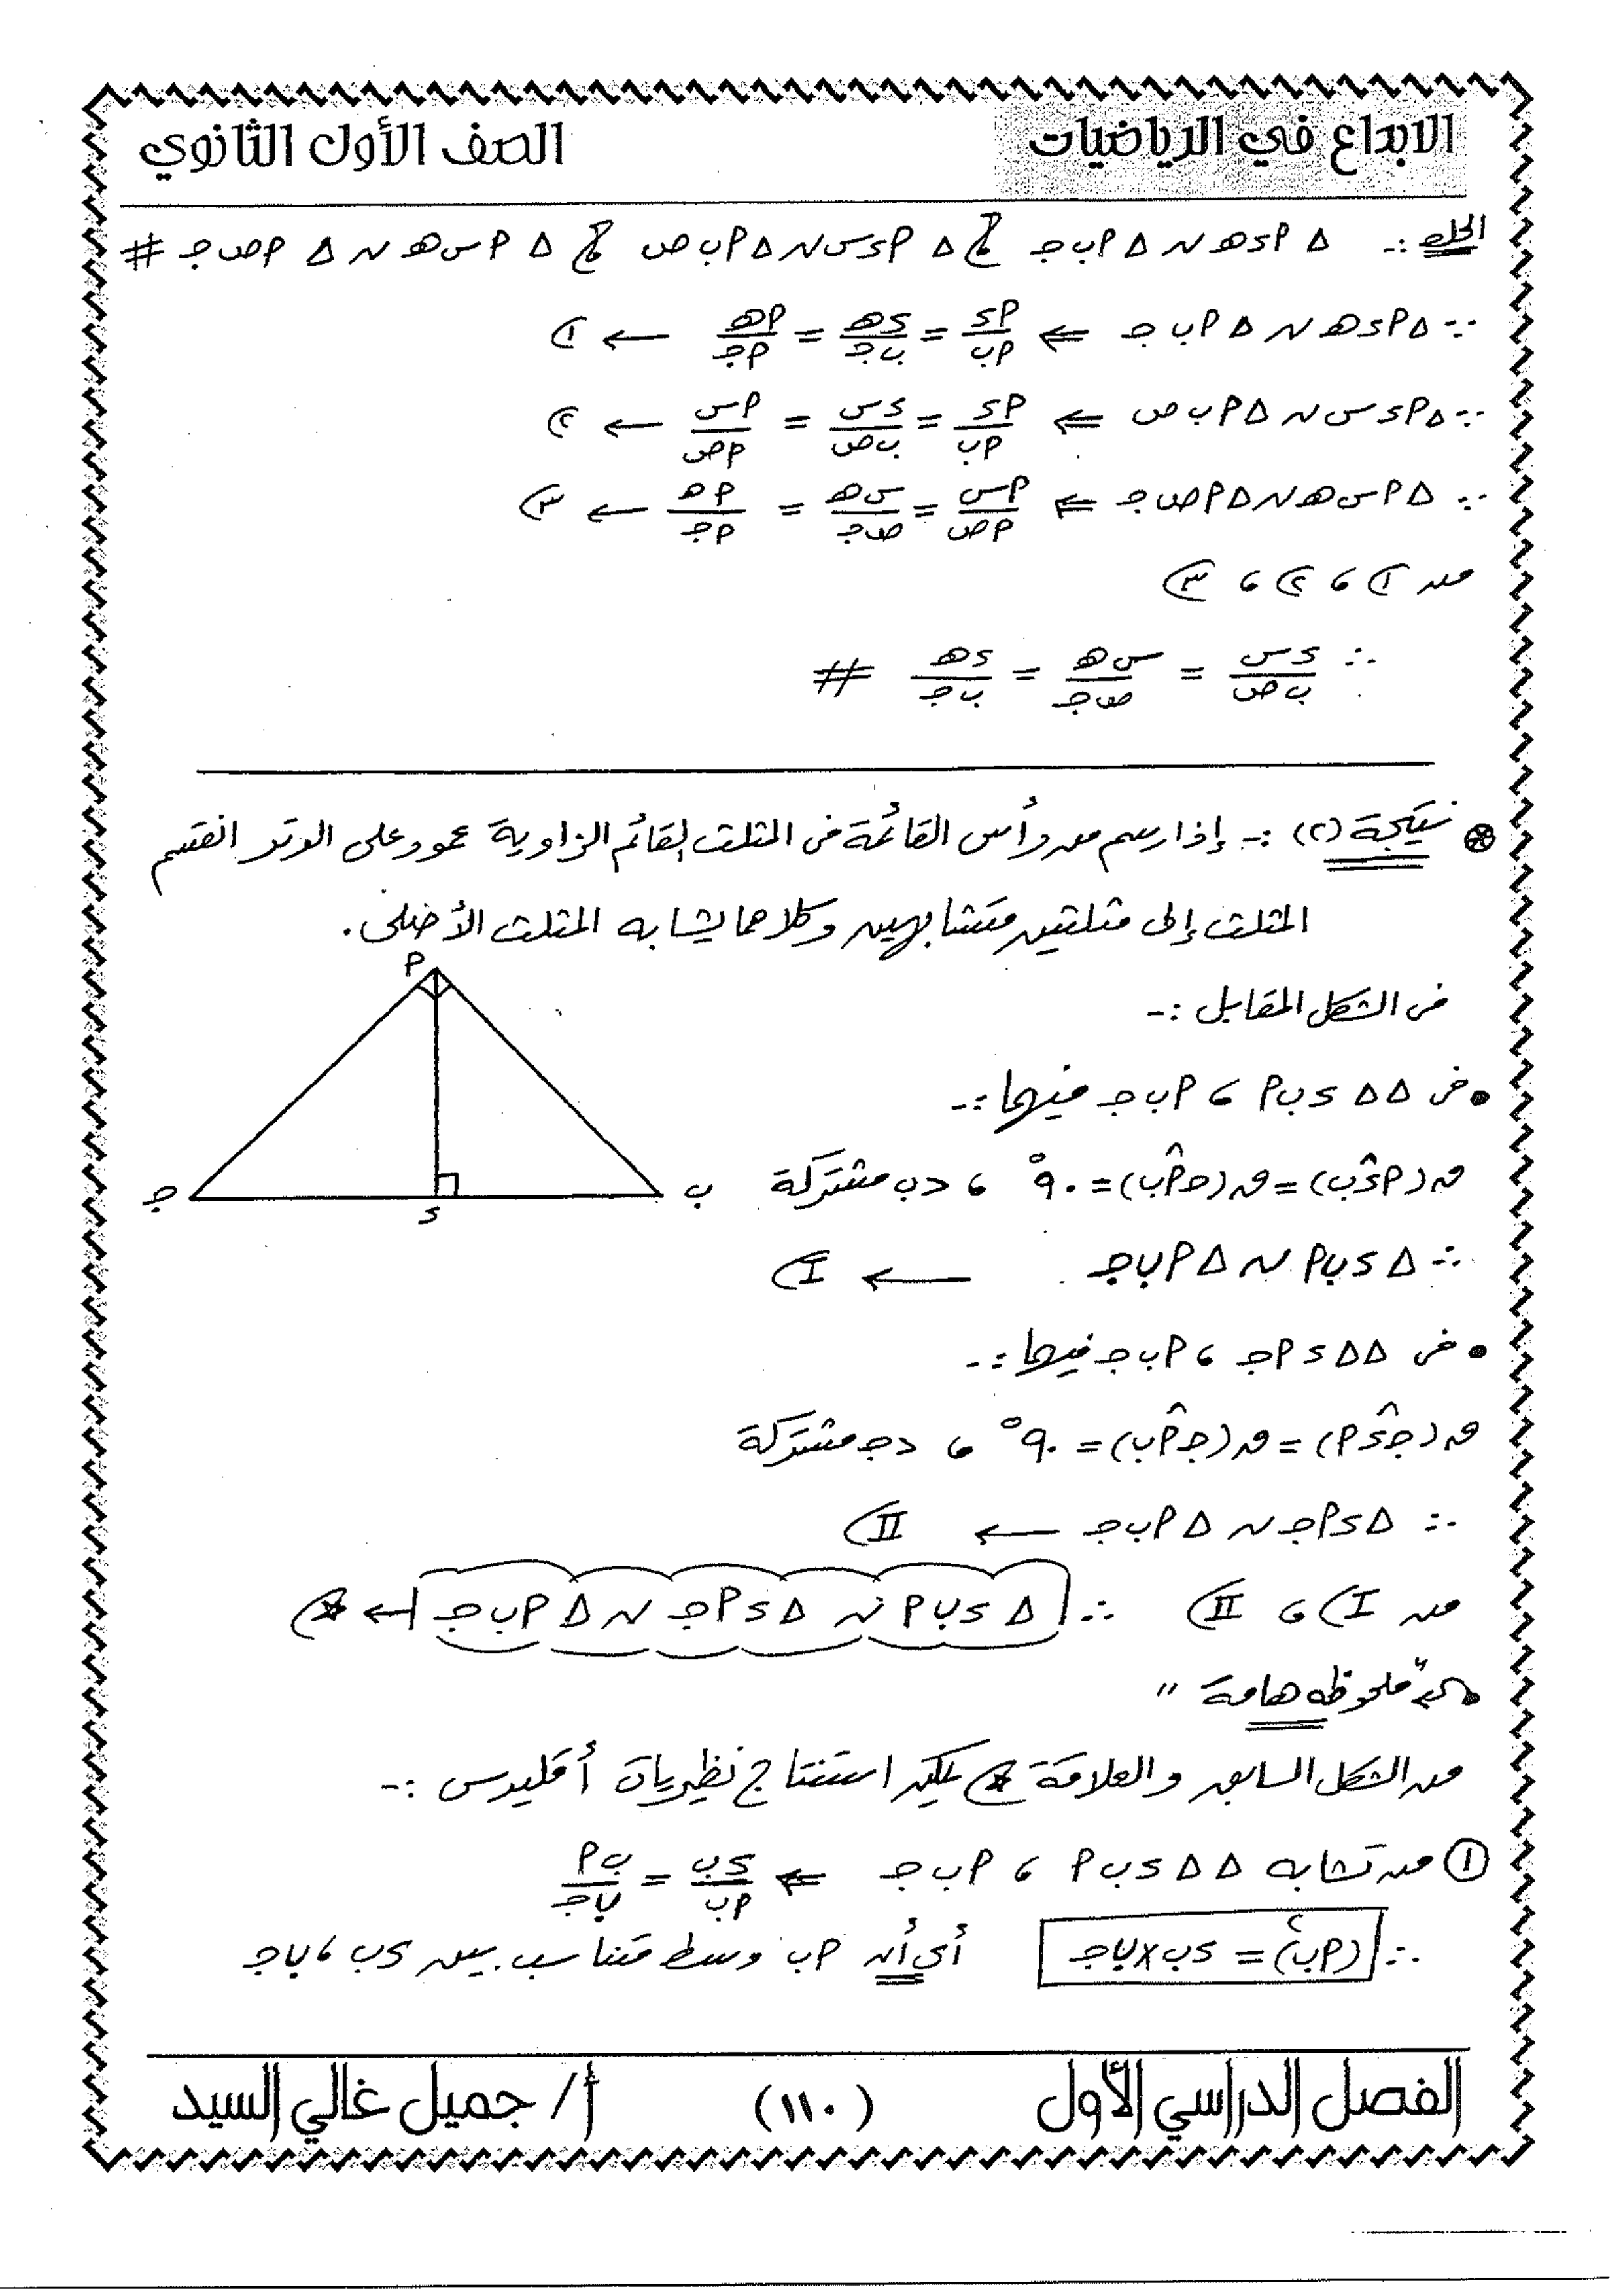 الابداع في الرياضيات
الصف الأول الثانوي
الحل :- Δ أ د هـ ~ Δ أ ب جـ ، Δ أ د س ~ Δ أ ب ص ، Δ أ س هـ ~ Δ أ ص جـ #
∵ Δ أ د هـ ~ Δ أ ب جـ ⇐ أد/أب = د هـ/ب جـ = أهـ/أجـ ← ١
∵ Δ أ د س ~ Δ أ ب ص ⇐ أد/أب = د س/ب ص = أس/أص ← ٢
∵ Δ أ س هـ ~ Δ أ ص جـ ⇐ أس/أص = س هـ/ص جـ = أهـ/أجـ ← ٣
من ١ ، ٢ ، ٣
∴ د س/ب ص = س هـ/ص جـ = د هـ/ب جـ #
نتيجة (٢) :- إذا رسم من رأس القائمة فى المثلث القائم الزاوية عمود على الوتر انقسم
المثلث إلى مثلثين متشابهين وكلاهما يشابه المثلث الأصلى .
فى الشكل المقابل :-
أ
ب
جـ
د
• فى Δ Δ د ب أ ، أ ب جـ فيهما :-
ق(أ د̂ ب) = ق(جـ أ̂ ب) = ٩٠° ، > ب مشتركة
∴ Δ د ب أ ~ Δ أ ب جـ ← I
• فى Δ Δ د أ جـ ، أ ب جـ فيهما :-
ق(جـ د̂ أ) = ق(جـ أ̂ ب) = ٩٠° ، > جـ مشتركة
∴ Δ د أ جـ ~ Δ أ ب جـ ← II
من I ، II ∴ Δ د ب أ ~ Δ د أ جـ ~ Δ أ ب جـ ← *
" ملحوظه هامة "
من الشكل السابق والعلامة * يمكن استنتاج نظريات أقليدس :-
① من تشابه Δ Δ د ب أ ، أ ب جـ ⇐ د ب/أ ب = ب أ/ب جـ
∴ (أ ب)٢ = د ب × ب جـ أى أن أ ب وسط متناسب بين د ب ، ب جـ
الفصل الدراسي الأول
(١١٠)
أ/ جميل غالي السيد